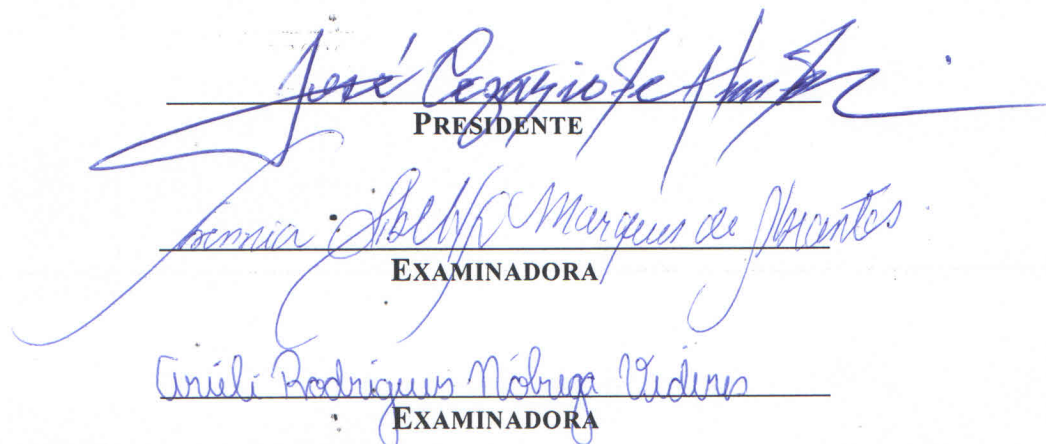 José Cezário de Almeida
PRESIDENTE
Marques de Abrantes
EXAMINADORA
Ariéli Rodrigues Nóbrega Videres
EXAMINADORA